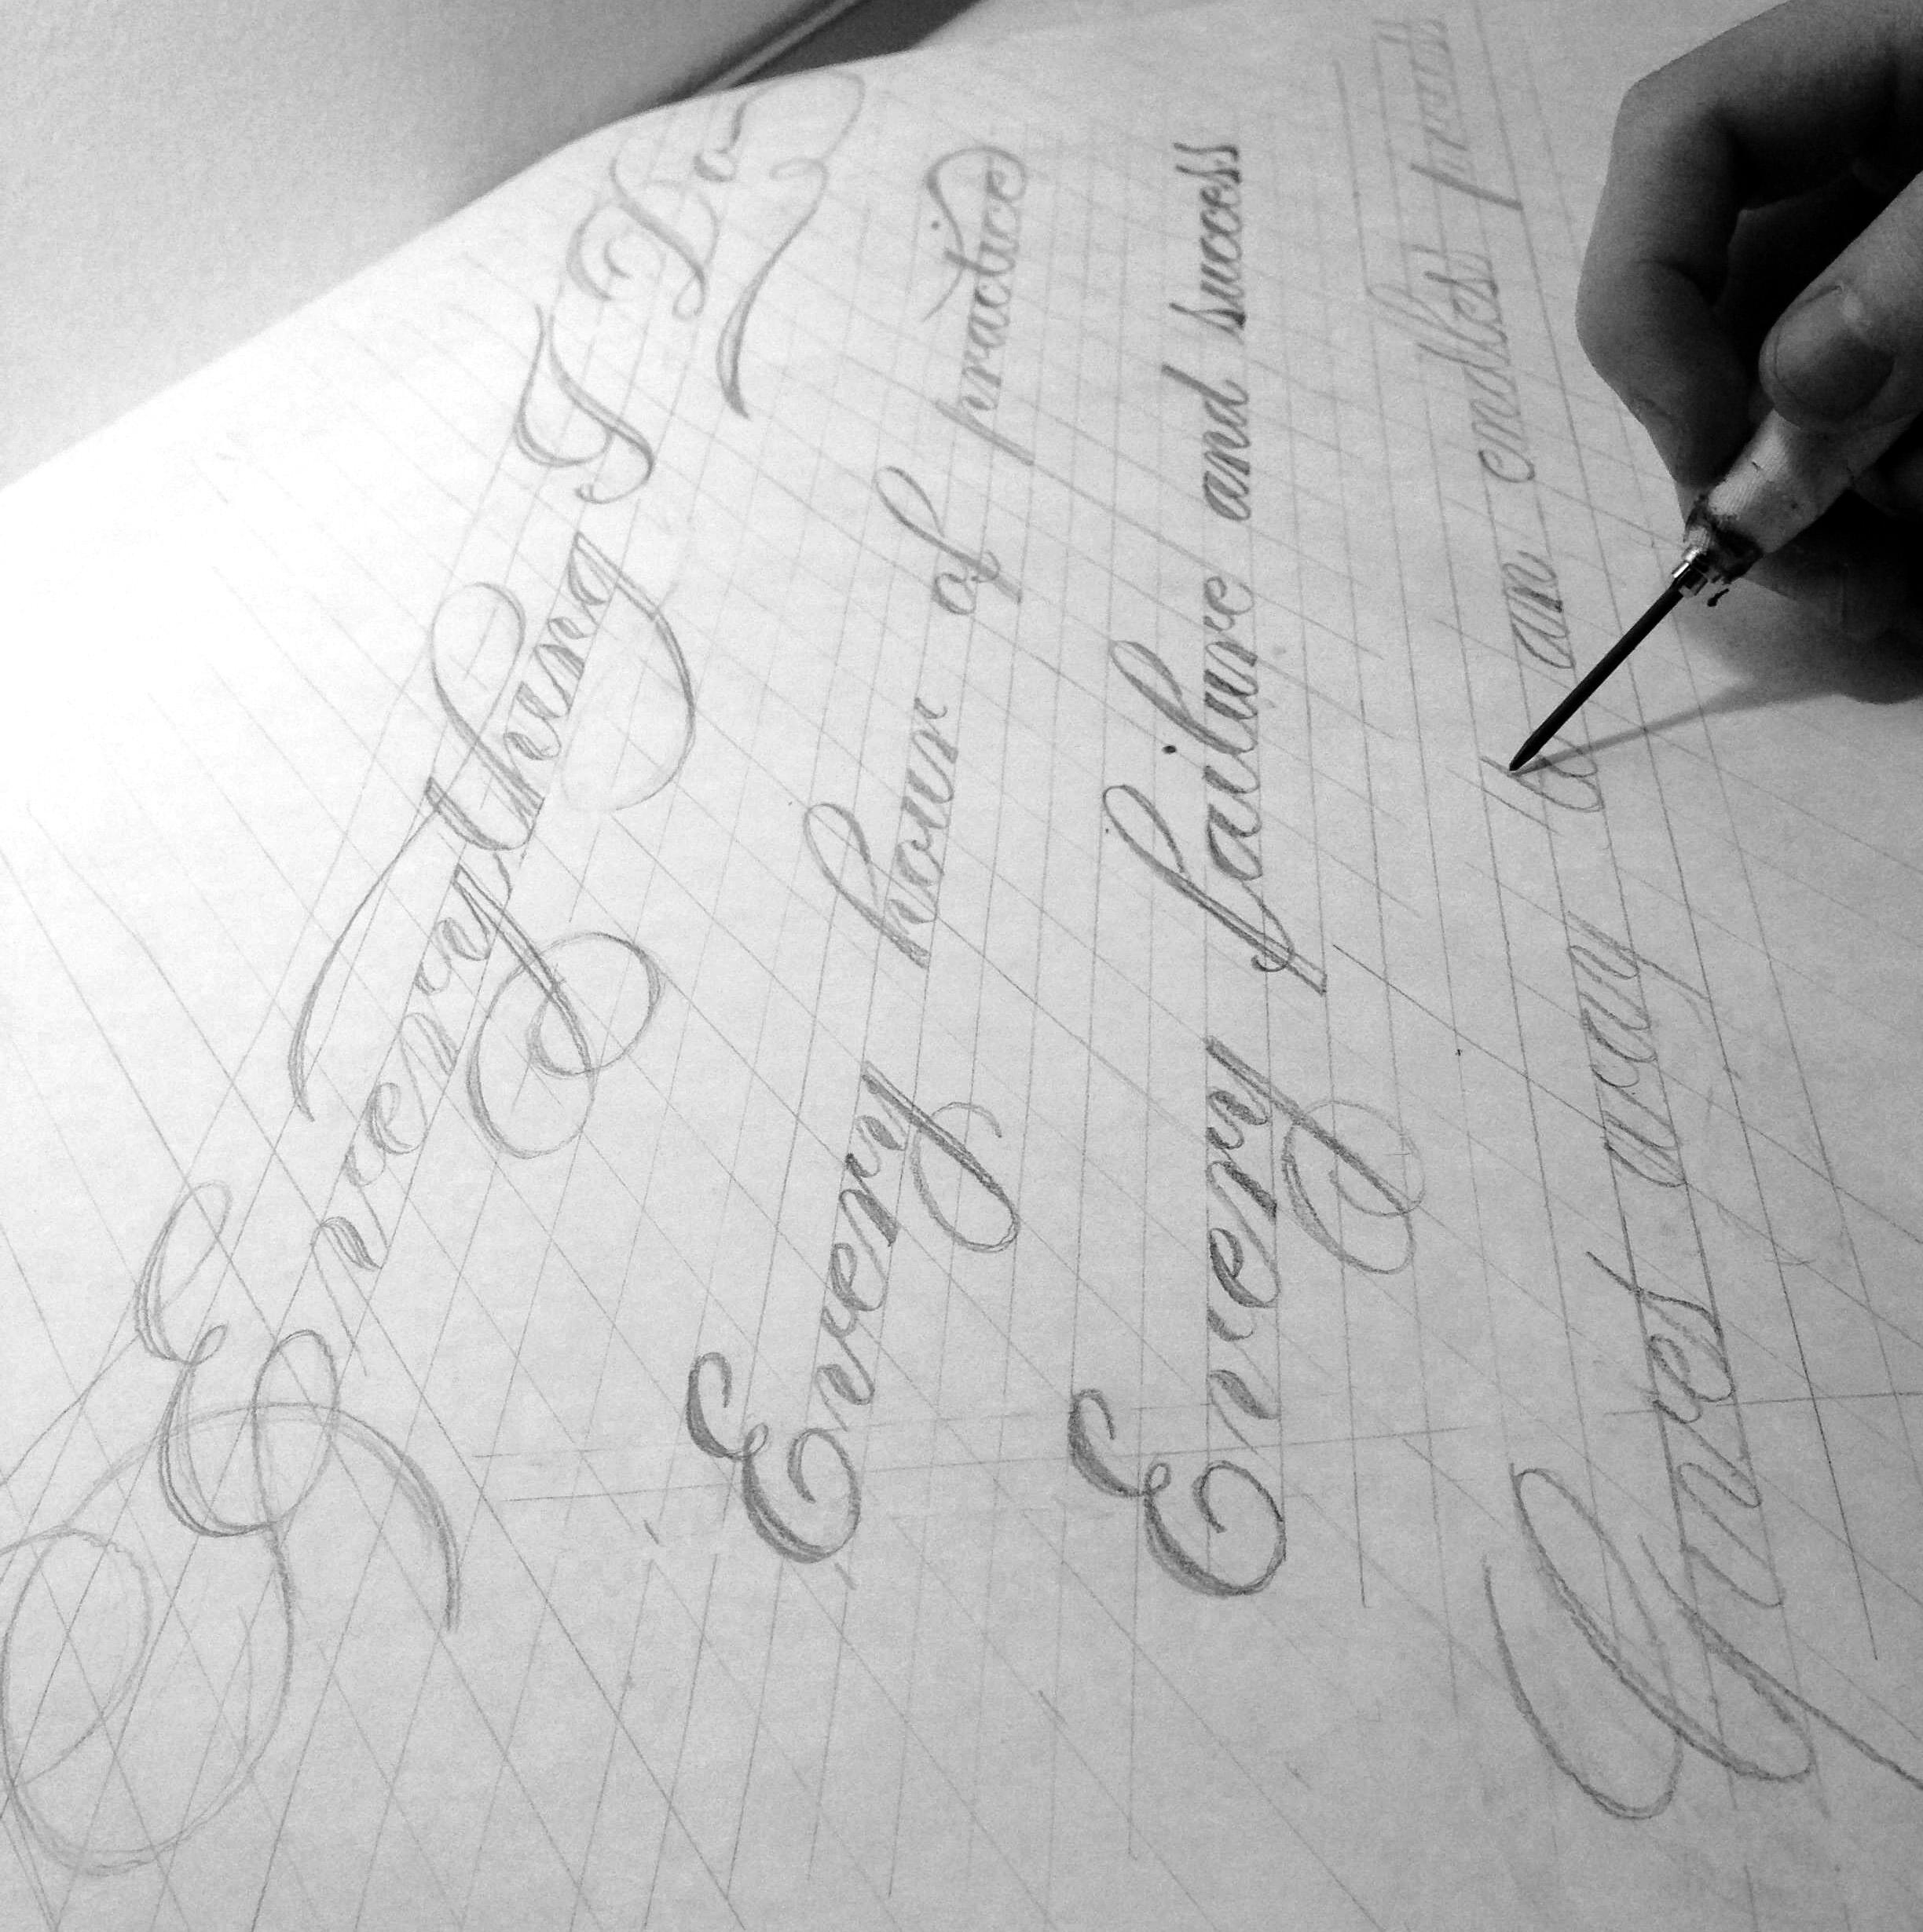 Everything I Do
Every hour of practice
Every failure and success
Gives way to an endless